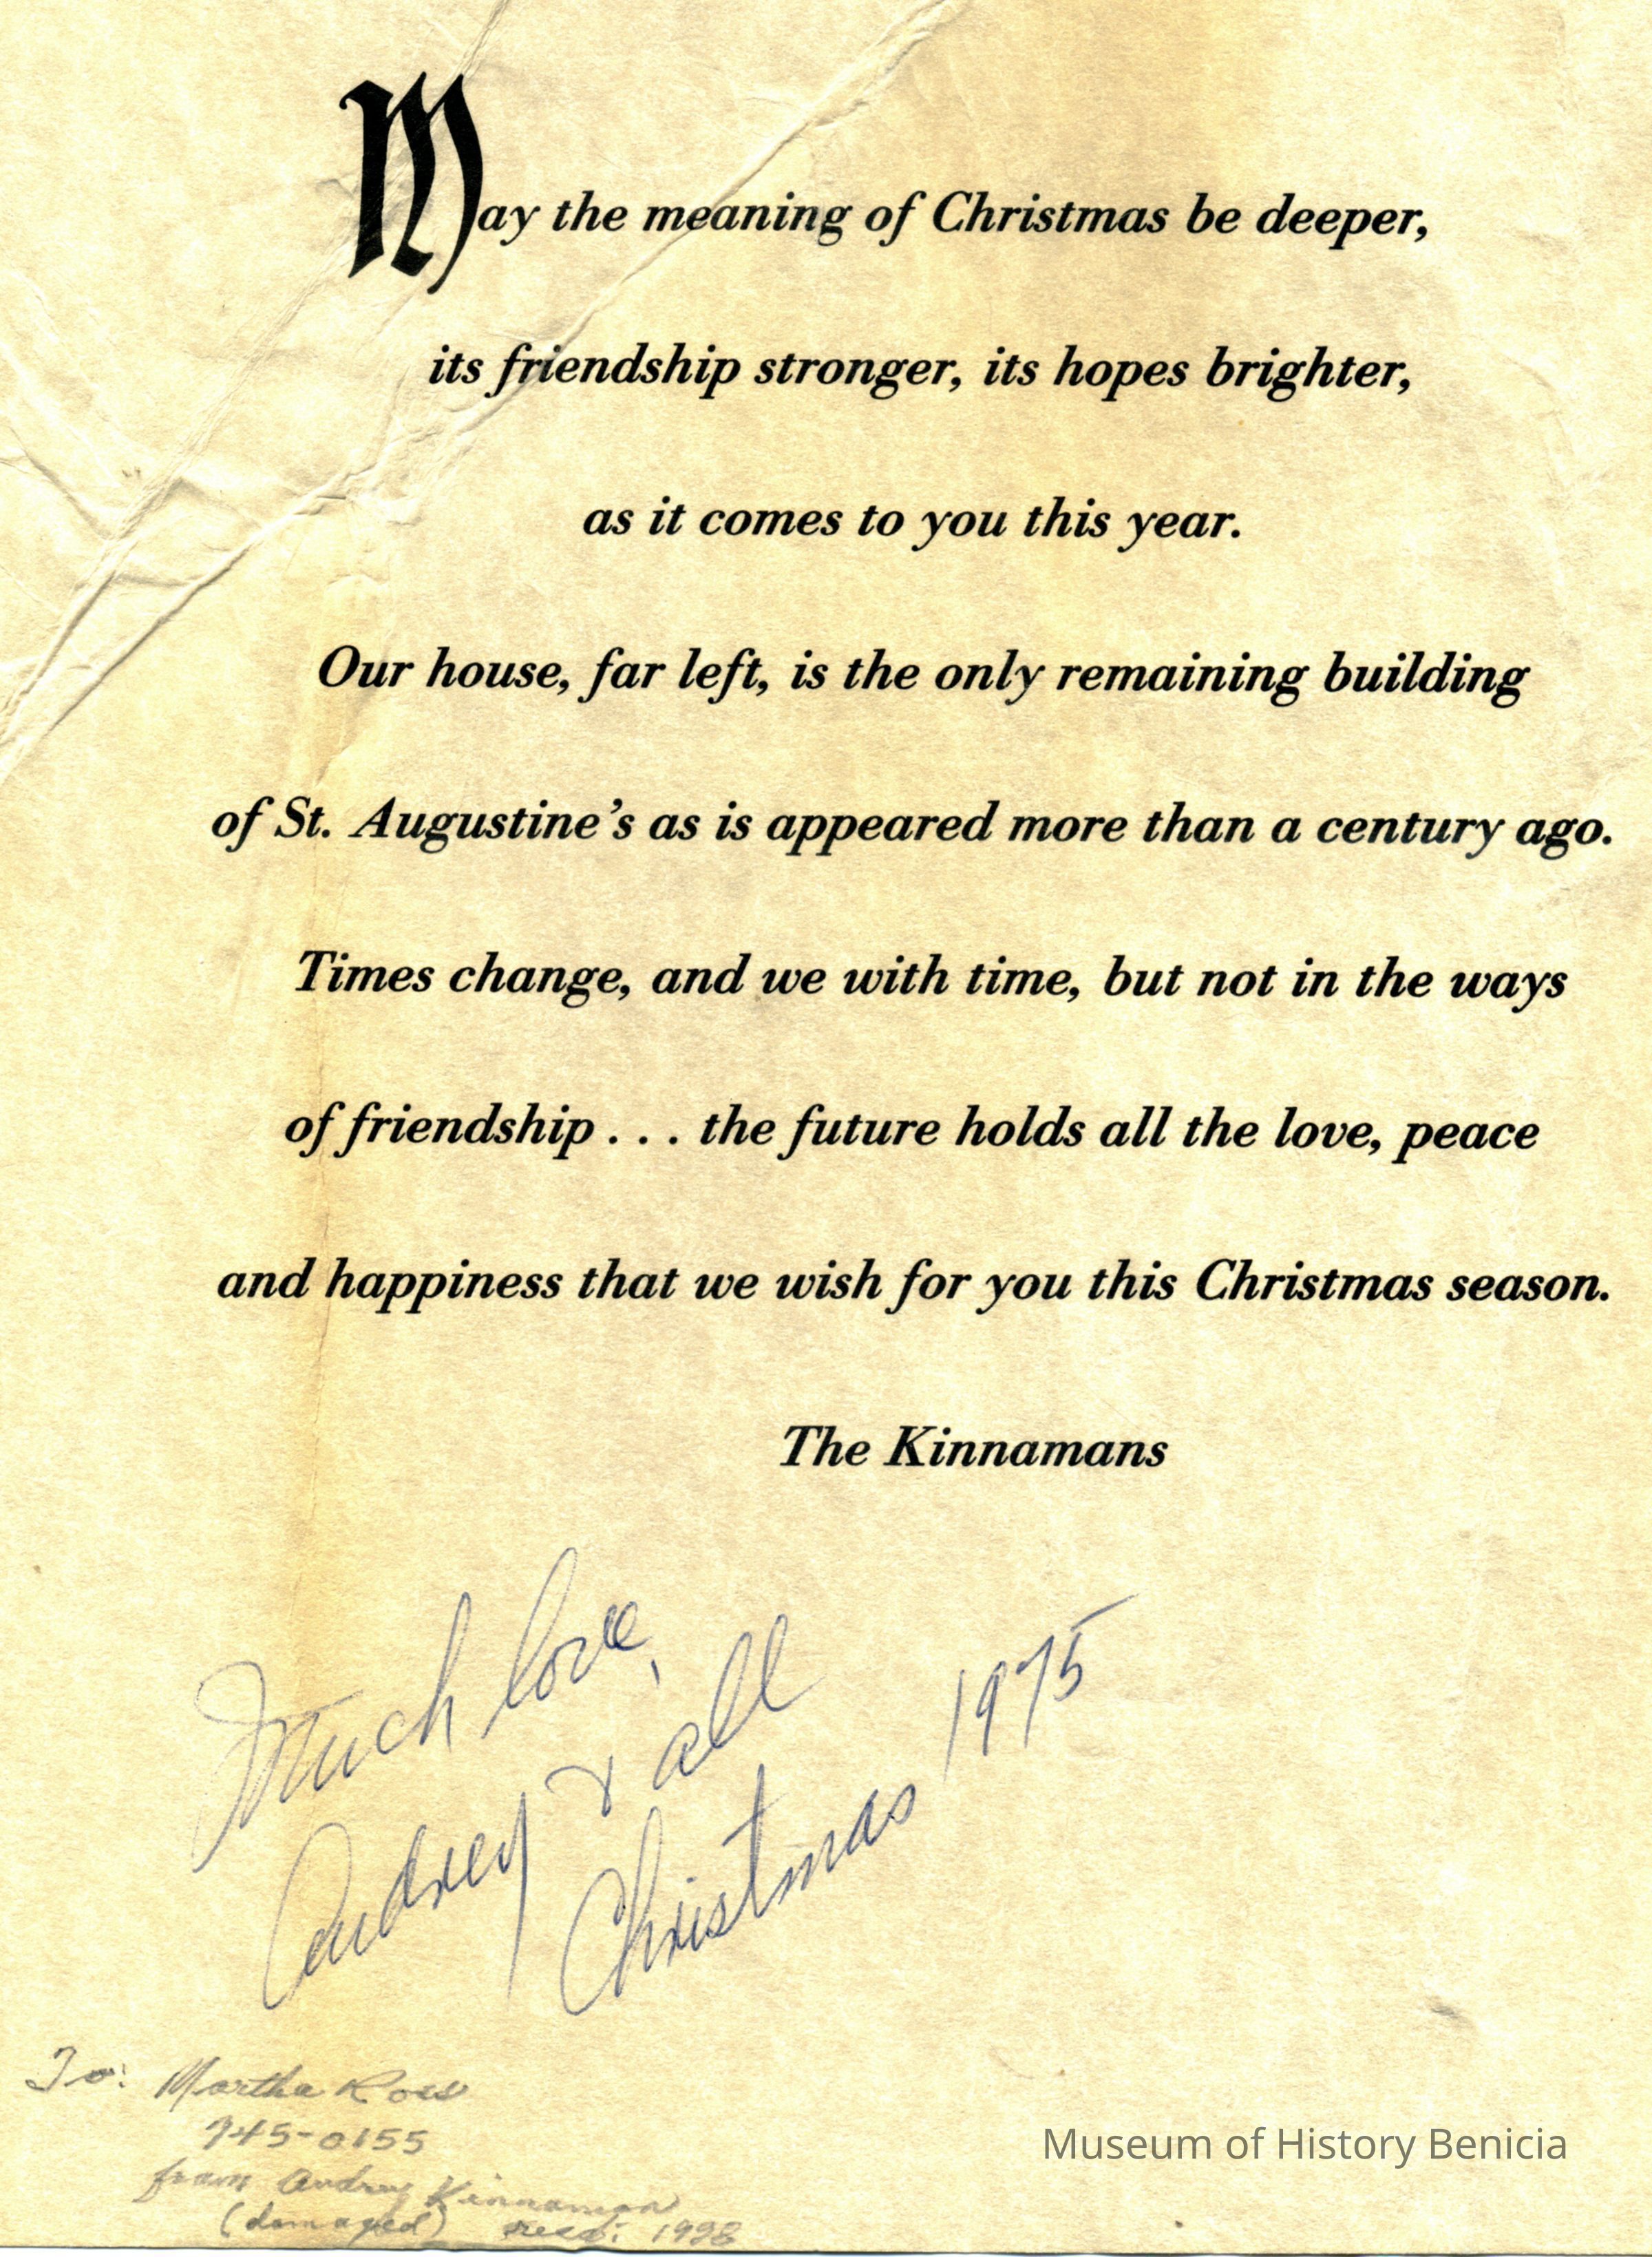 May the meaning of Christmas be deeper,
its friendship stronger, its hopes brighter,
as it comes to you this year.
Our house, far left, is the only remaining building
of St. Augustine's as is appeared more than a century ago.
Times change, and we with time, but not in the ways
of friendship . . . the future holds all the love, peace
and happiness that we wish for you this Christmas season.
The Kinnamans
Much love,
Audrey & all
Christmas 1975
To: Martha Ross
745-0155
from Audrey Kinnaman
(damaged) recd: 1998
Museum of History Benicia